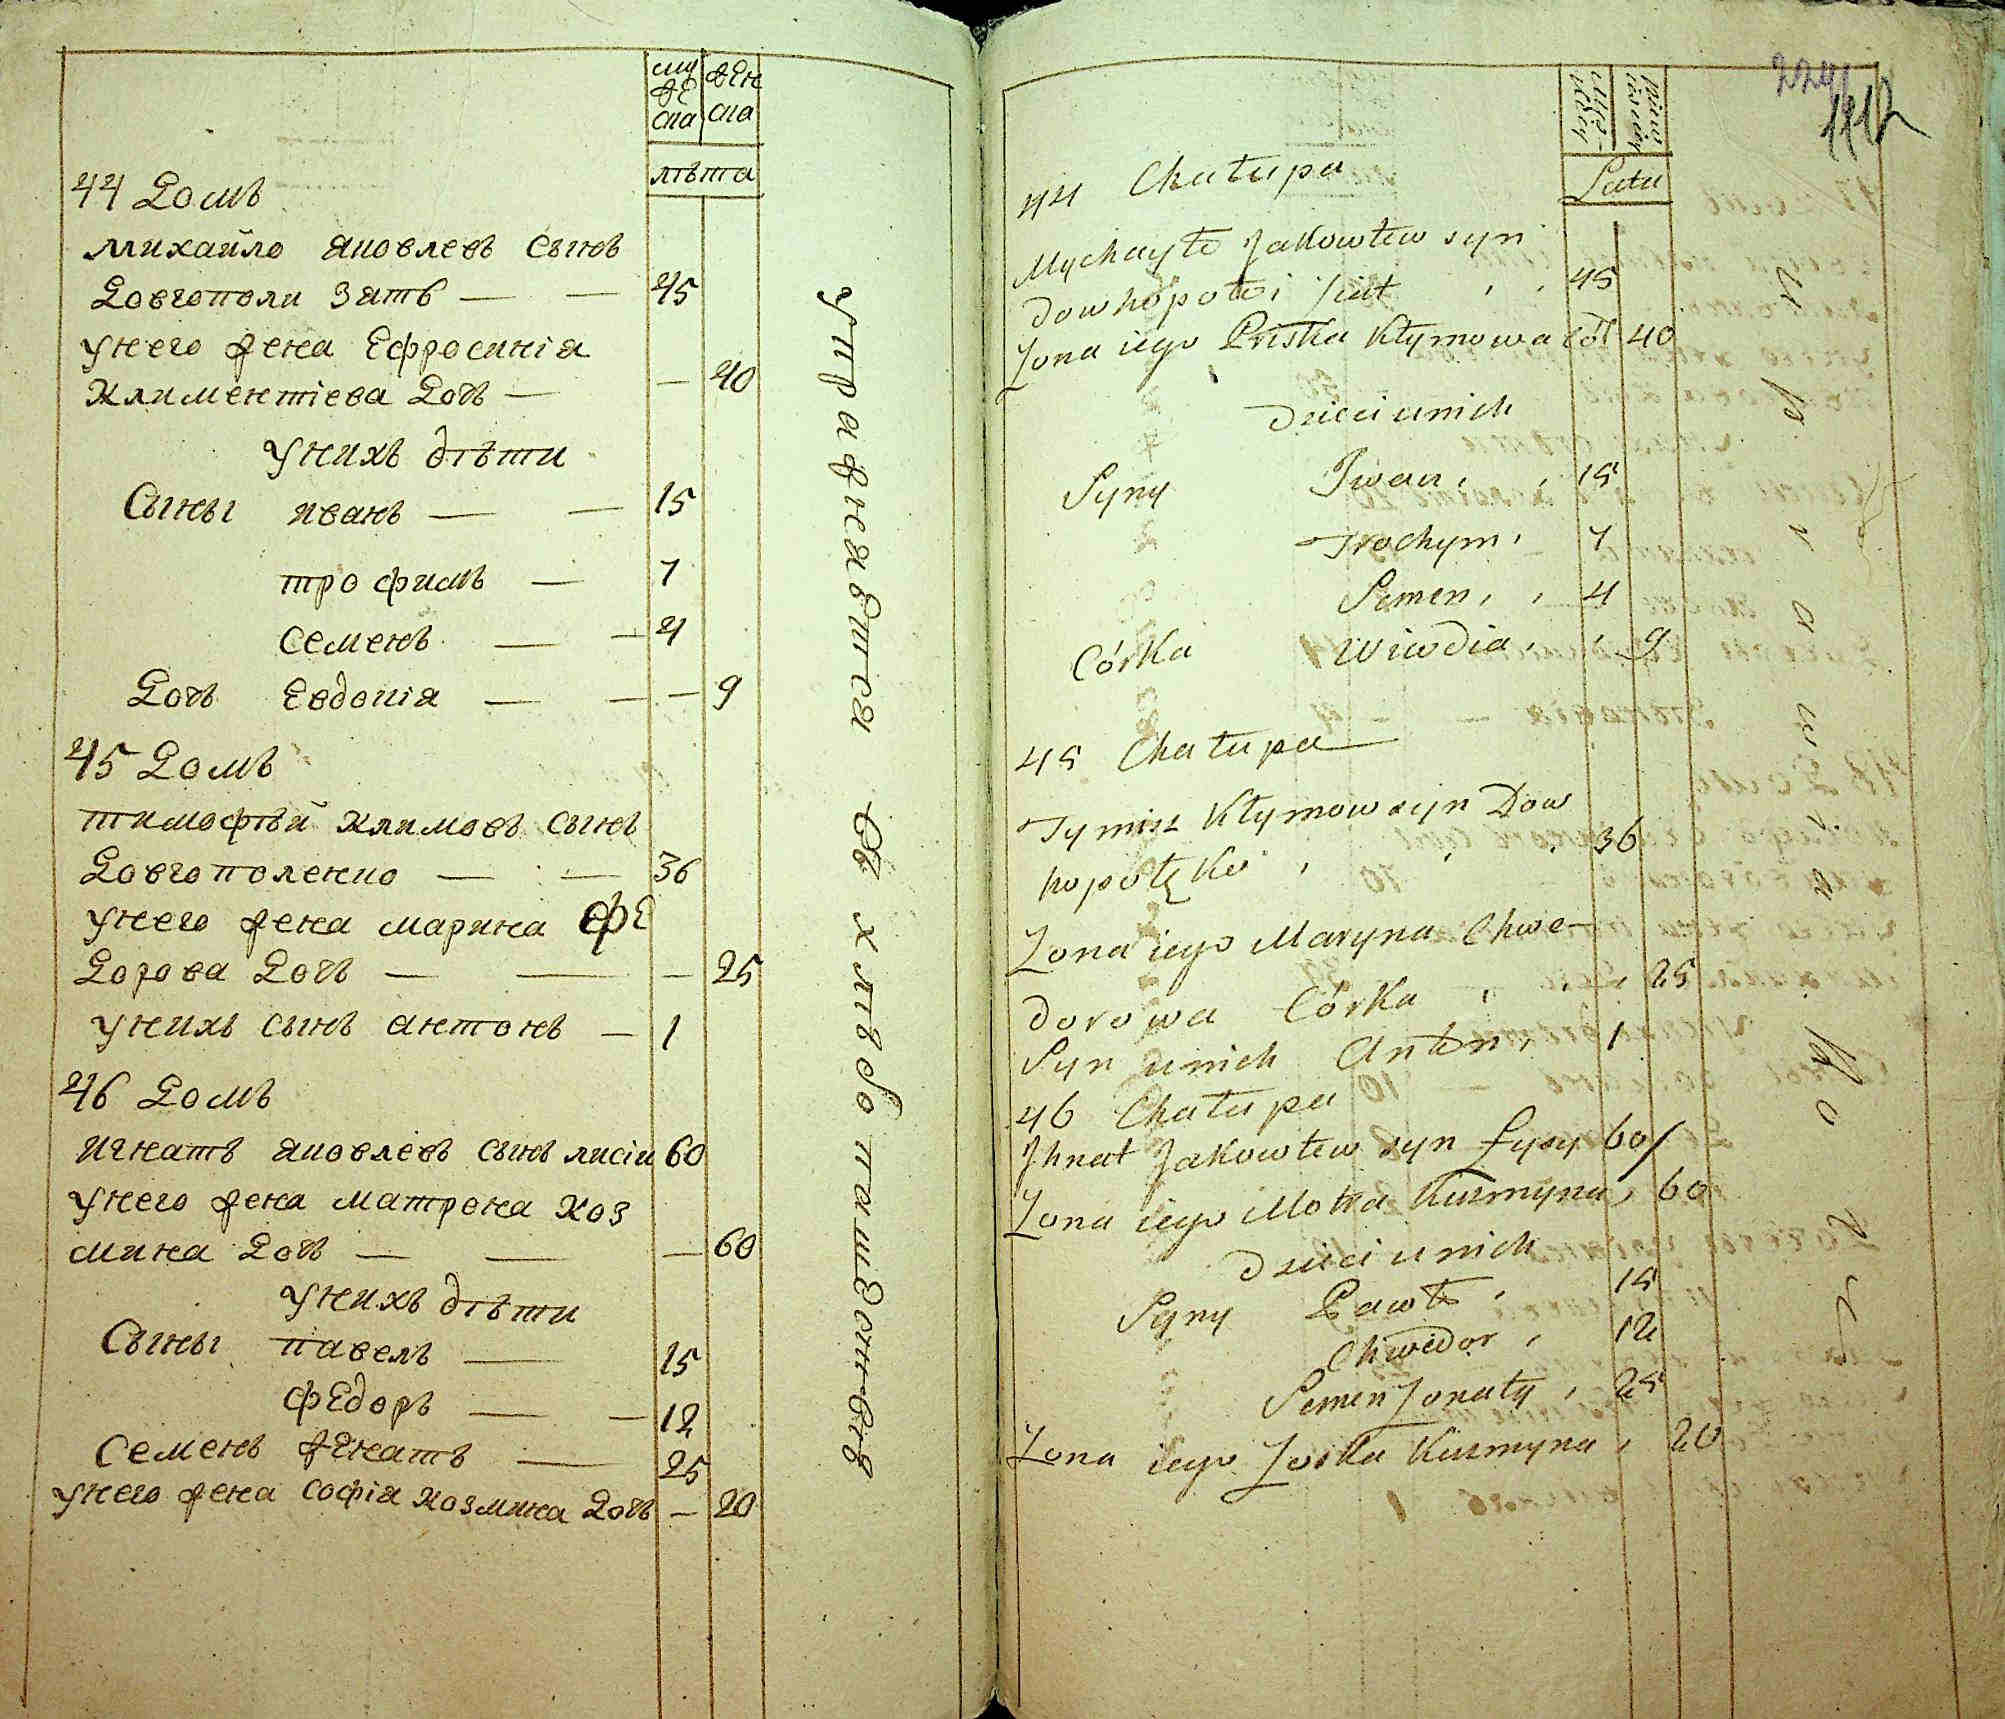 муже
ска
жен
ска
лѣта
44 Домъ
михайло яковлевъ сынъ
Довгополи зать — — 45
унего жена Ефросинія
климентіева Дочь — — 40
унихъ дѣти
Сыны иванъ — — 15
трофимъ — 7
семенъ — — 4
Дочь Евдокія — — — 9
45 Домъ
тимофѣй климовъ сынъ
Довгополенко — — 36
унего жена марина фе
Дорова Дочь — — — 25
унихъ сынъ антонъ — 1
46 Домъ
игнатъ яковлевъ сынъ лисій 60
унего жена матрона коз
мина Дочь — — — 60
унихъ дѣти
Сыны павелъ — 15
федоръ — — 12
Семенъ женатъ — 25
унего жена софія козмина Дочь — 20
упражняется въ хлѣбопашествѣ
224
Latu
44 Chałupa
Mychayło Jakowlew syn
Dowhopołoi Ziat 45
Zona iego Priska Kłymowa cór 40
Dzieci unich
Syny Iwan, 15
Trochym, 7
Semen, 4
Córka Wiwdia, 9
45 Chałupa
Tymisz Kłymow syn Dow
hopołęko 36
Zona iego Maryna Chwe-
dorowa Córka 25
Syn unich Anton, 1
46 Chałupa
Ihnat Jakowlew syn Łysy 60
Zona iego Motra Kuzmyna, 60
Dzieci unich
Syny Pawło, 15
Chwedor, 12
Semen Zonaty, 25
Zona iego Zoska Kuzmyna, 20